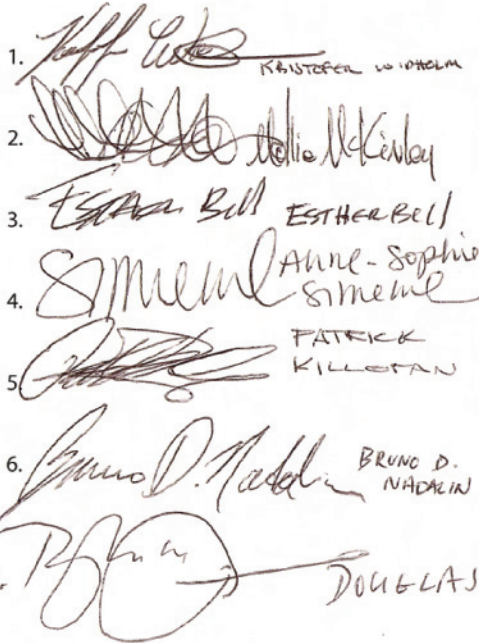 1. KRISTOFER WIDHOLM
2. Mollie McKinley
3. Esther Bell ESTHER BELL
4. Simeme Anne-Sophie
Simeme
5. PATRICK
KILLORAN
6. Bruno D. Nadalin BRUNO D.
NADALIN
DOUGLAS